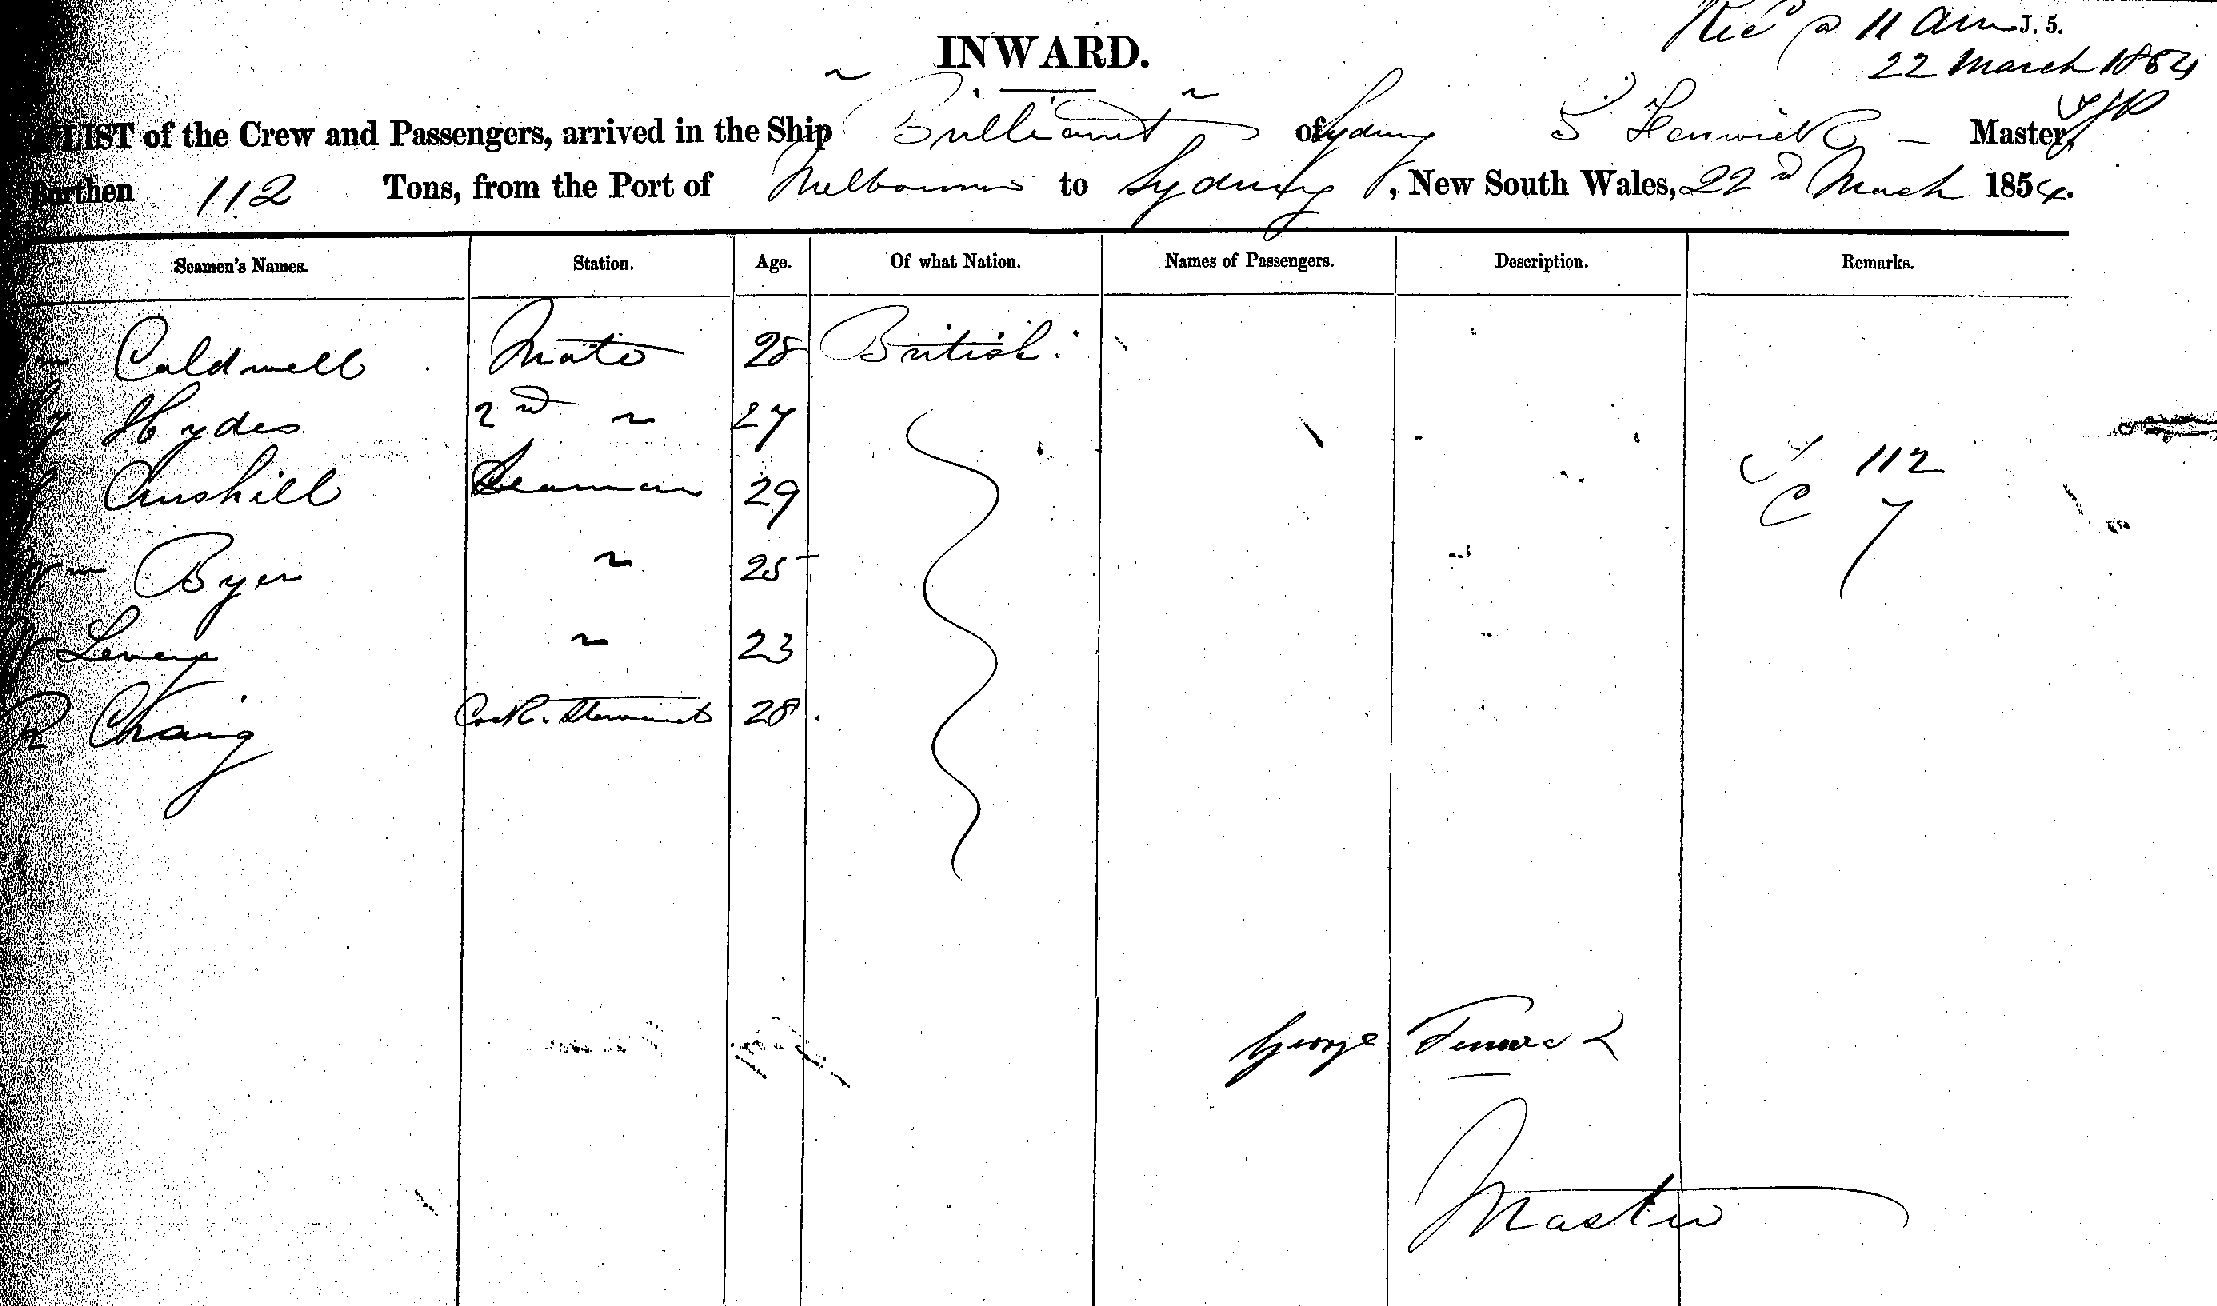 Recd @ 11 am J. 5.
22 March 1854
INWARD.
LIST of the Crew and Passengers, arrived in the Ship "Brilliant" of Sydney Fenwick — Master,
Burthen 112 Tons, from the Port of Melbourne to Sydney, New South Wales, 22nd March 1854.
Seamen's Names. Station. Age. Of what Nation. Names of Passengers. Description. Remarks.
Caldwell Mate 28 British
Hydes 2nd " 27
Seaman 29 T 112
C 7
Wm Byer " 25
Levey " 23
R Chaig Cook. Steward 28
George Fenwick
Master